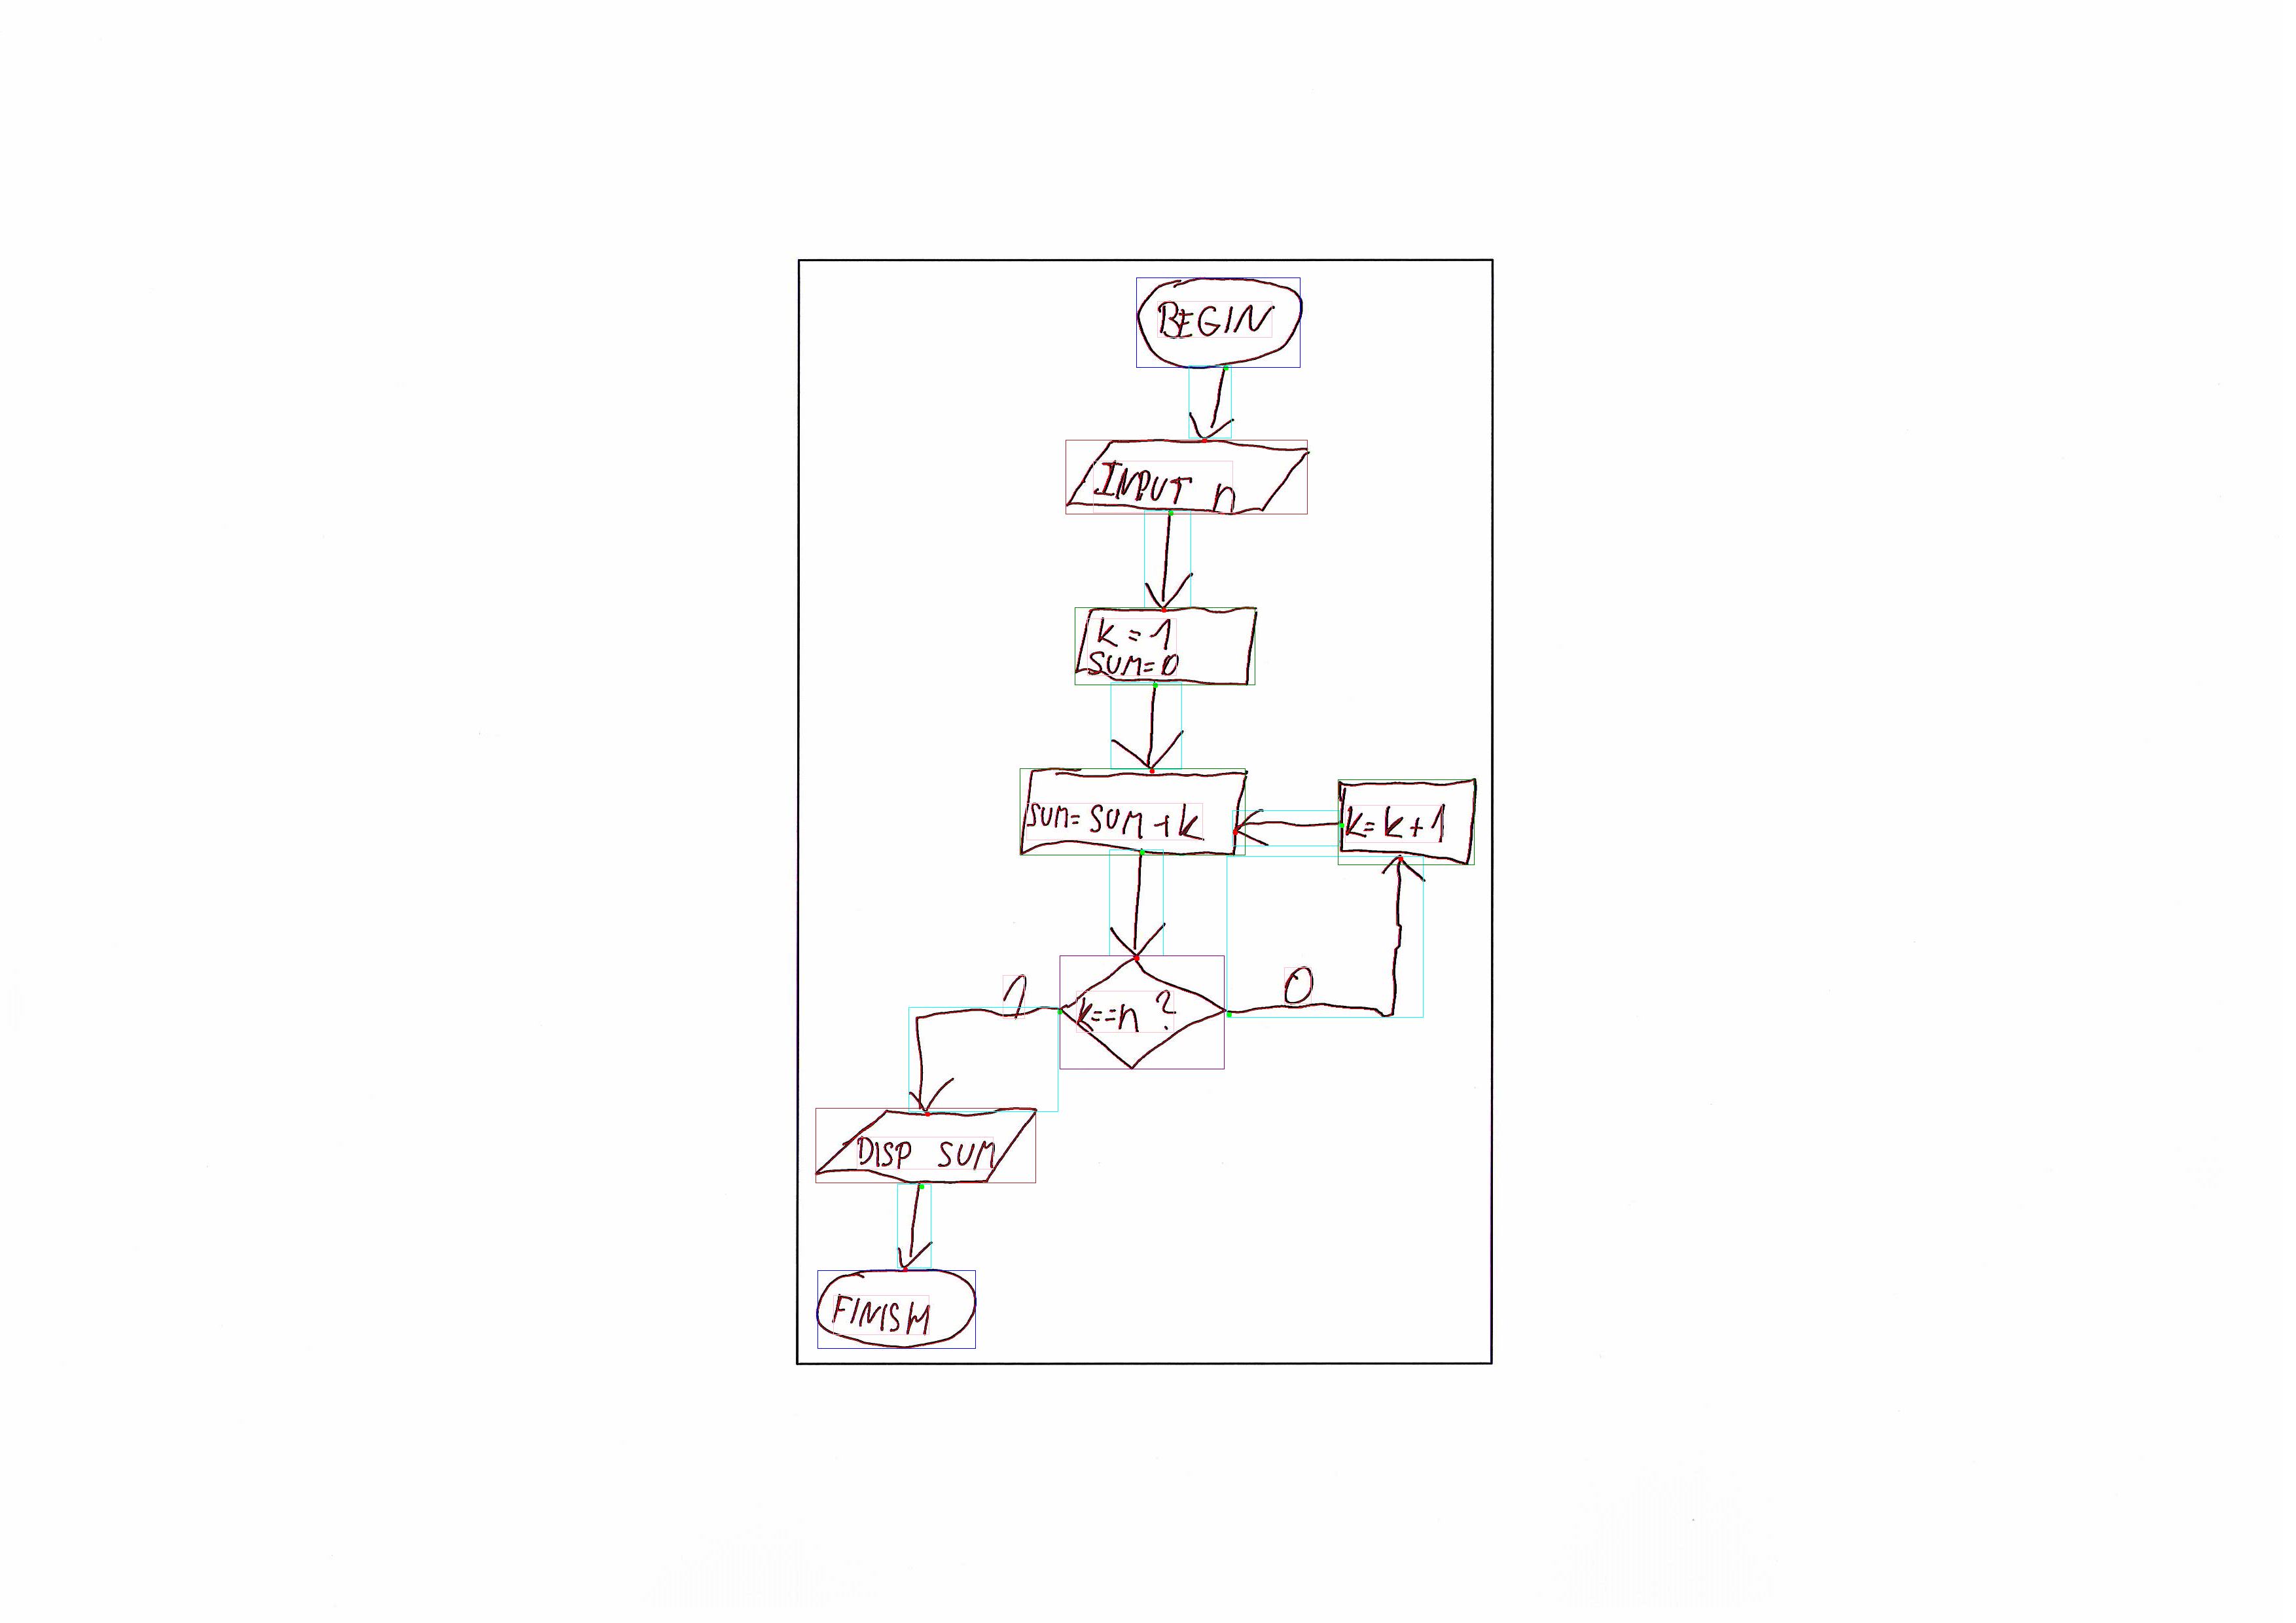 BEGIN
INPUT n
k=1
SUM=0
SUM=SUM+k
k=k+1
1
k==n?
0
DISP SUM
FINISH